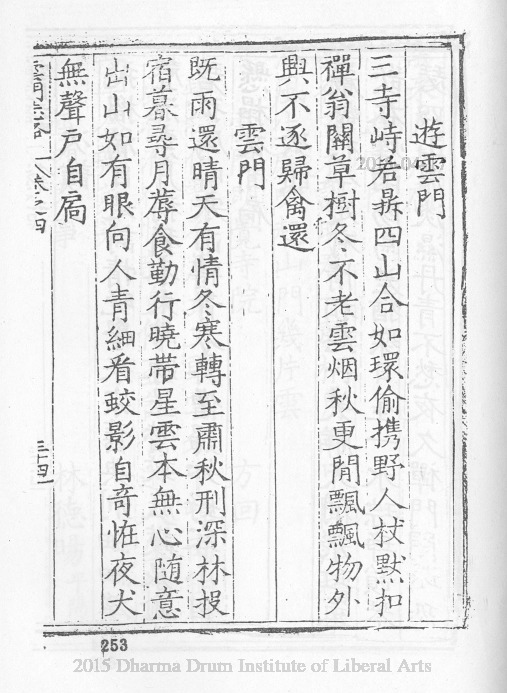 遊雲門
三寺峙若鼎四山合如環偷携野人杖默扣
禪翁關草樹冬不老雲烟秋更閒飄飄物外
興不逐歸禽還
雲門
既雨還晴天有情冬寒轉至肅秋刑深林投
宿暮尋月蓐食勤行曉帶星雲本無心随意
出山如有眼向人青細看蛟影自奇恠夜犬
無聲戶自扃
卷之四
三十四
253
2015 Dharma Drum Institute of Liberal Arts